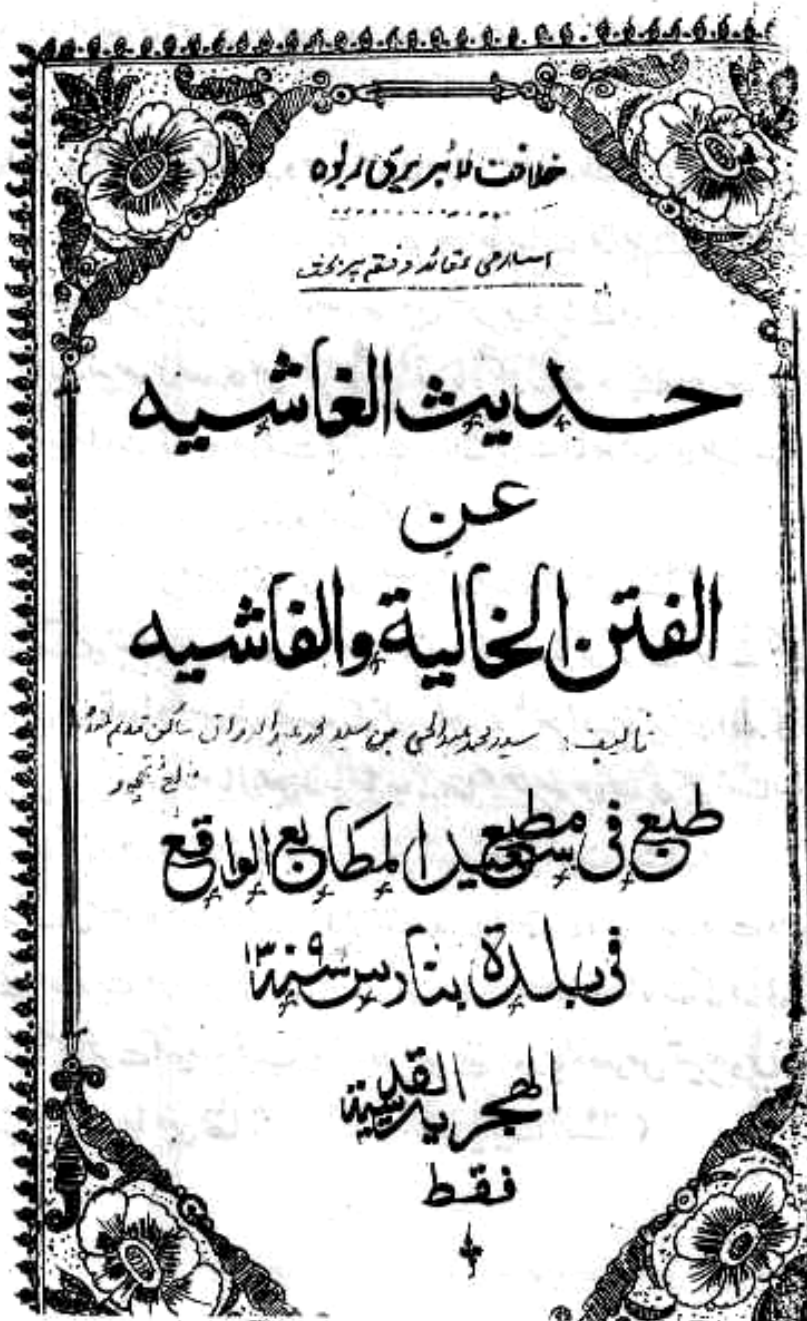 خلافت لائبریری ربوہ
اسلامی عقائد و فقہ پر بحث
حديث الغاشيه
عن
الفتن الخالية والفاشيه
تالیف: سید محمد عبدالحی بن سید محمد عبدالرزاق ساکن قدیم
ضلع فتحپور
طبع في مطبع سعيد المطابع الواقع
في بلدة بنارس سنة ١٣٠٩
الهجرية القدسية
فقط